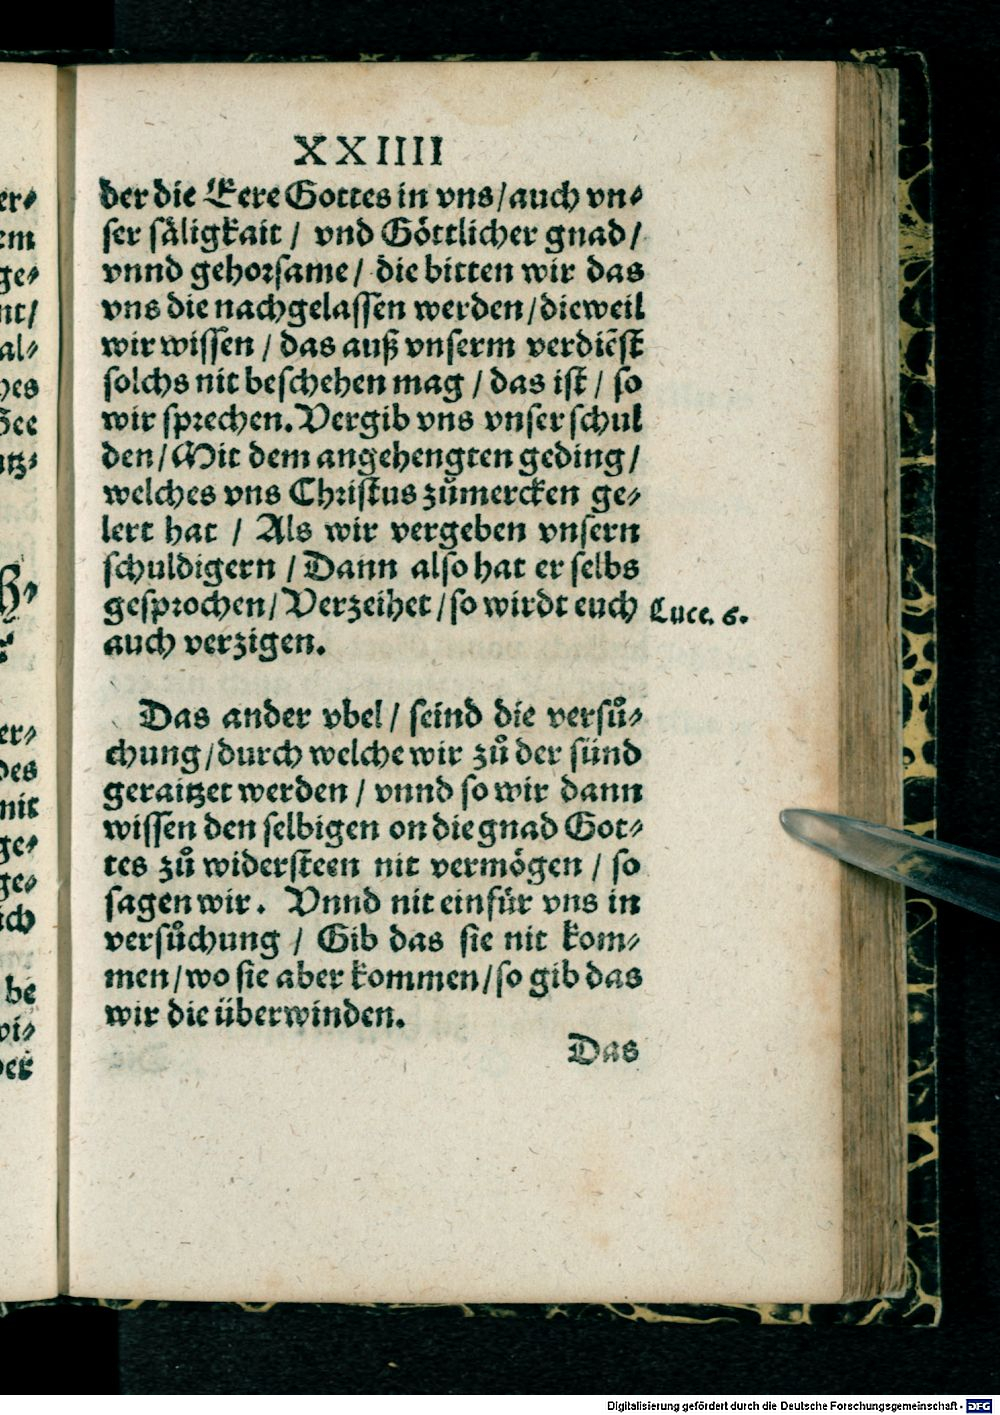 XXIIII
der die Eere Gottes in vns/auch vn⸗
ser säligkait / vnd Göttlicher gnad/
vnnd gehorsame / die bitten wir das
vns die nachgelassen werden/dieweil
wir wissen / das auß vnserm verdiẽst
solchs nit beschehen mag / das ist / so
wir sprechen. Vergib vns vnser schul
den/Mit dem angehengten geding/
welches vns Christus zůmercken ge⸗
lert hat / Als wir vergeben vnsern
schuldigern / Dann also hat er selbs
gesprochen/Verzeihet/so wirdt euch Luce. 6.
auch verzigen.
Das ander vbel / seind die versů⸗
chung/durch welche wir zů der sünd
geraitzet werden / vnnd so wir dann
wissen den selbigen on die gnad Got⸗
tes zů widersteen nit vermögen / so
sagen wir. Vnnd nit einfür vns in
versůchung / Gib das sie nit kom⸗
men/wo sie aber kommen/so gib das
wir die überwinden.
Das
Digitalisierung gefördert durch die Deutsche Forschungsgemeinschaft - DFG